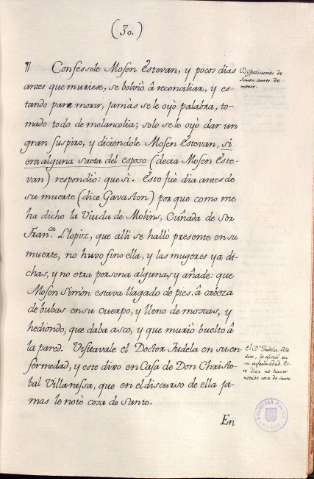 (30.)
¶ Confessole Mosen Estovan, y pocos dias
antes que muriese, se bolvió à reconciliar, y es-
tando para morir, jamàs se le oyò palabra, to-
mado todo de melancolia; solo se le oyò dar un
gran suspiro, y diciendole Mosen Estovan, si
era alguna saeta del esposo (decia Mosen Este-
van) respondiò: que si. Esto fuè dia antes de
su muerte (dice Gavaston) por que como me
ha dicho la Viuda de Molins, Cuñada de Sor
Fran.ca Llopiz, que alli se hallò presente en su
muerte, no huvo fino ella, y las mugeres ya di-
chas, y no otra persona alguna; y añade: que
Mosen Simòn estava llagado de pies à cabeza
de bubas en su cuerpo, y lleno de moscas, y
hediondo, que daba asco, y que muriò buelto à
la pared. Visitavale el Doctor Judela en su en-
fermedad, y este dixo en Casa de Don Chris-to-
bal Villanassa, que en el discurso de ella ja-
mas le notè cosa de Santo.
En
Disposiciones de
Simon antes de
morir.